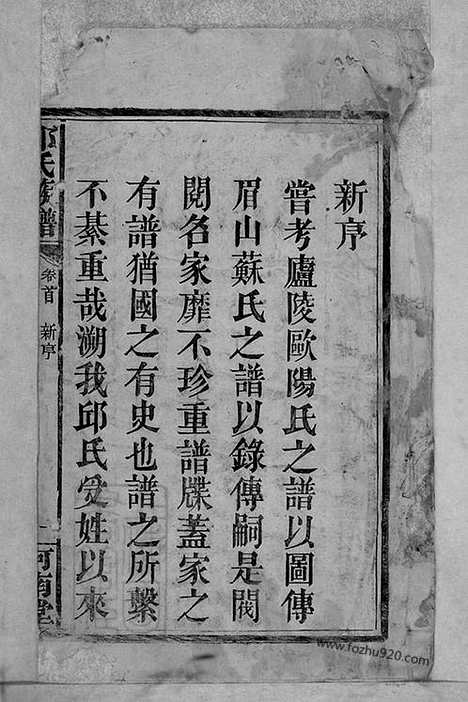 新序
嘗考廬陵歐陽氏之譜以圖傳
眉山蘇氏之譜以錄傳嗣是閱
閱名家靡不珍重譜牒蓋家之
有譜猶國之有史也譜之所繫
不綦重哉溯我邱氏受姓以來
邱氏族譜
卷首
新序
一
河南堂
www.fozhu920.com